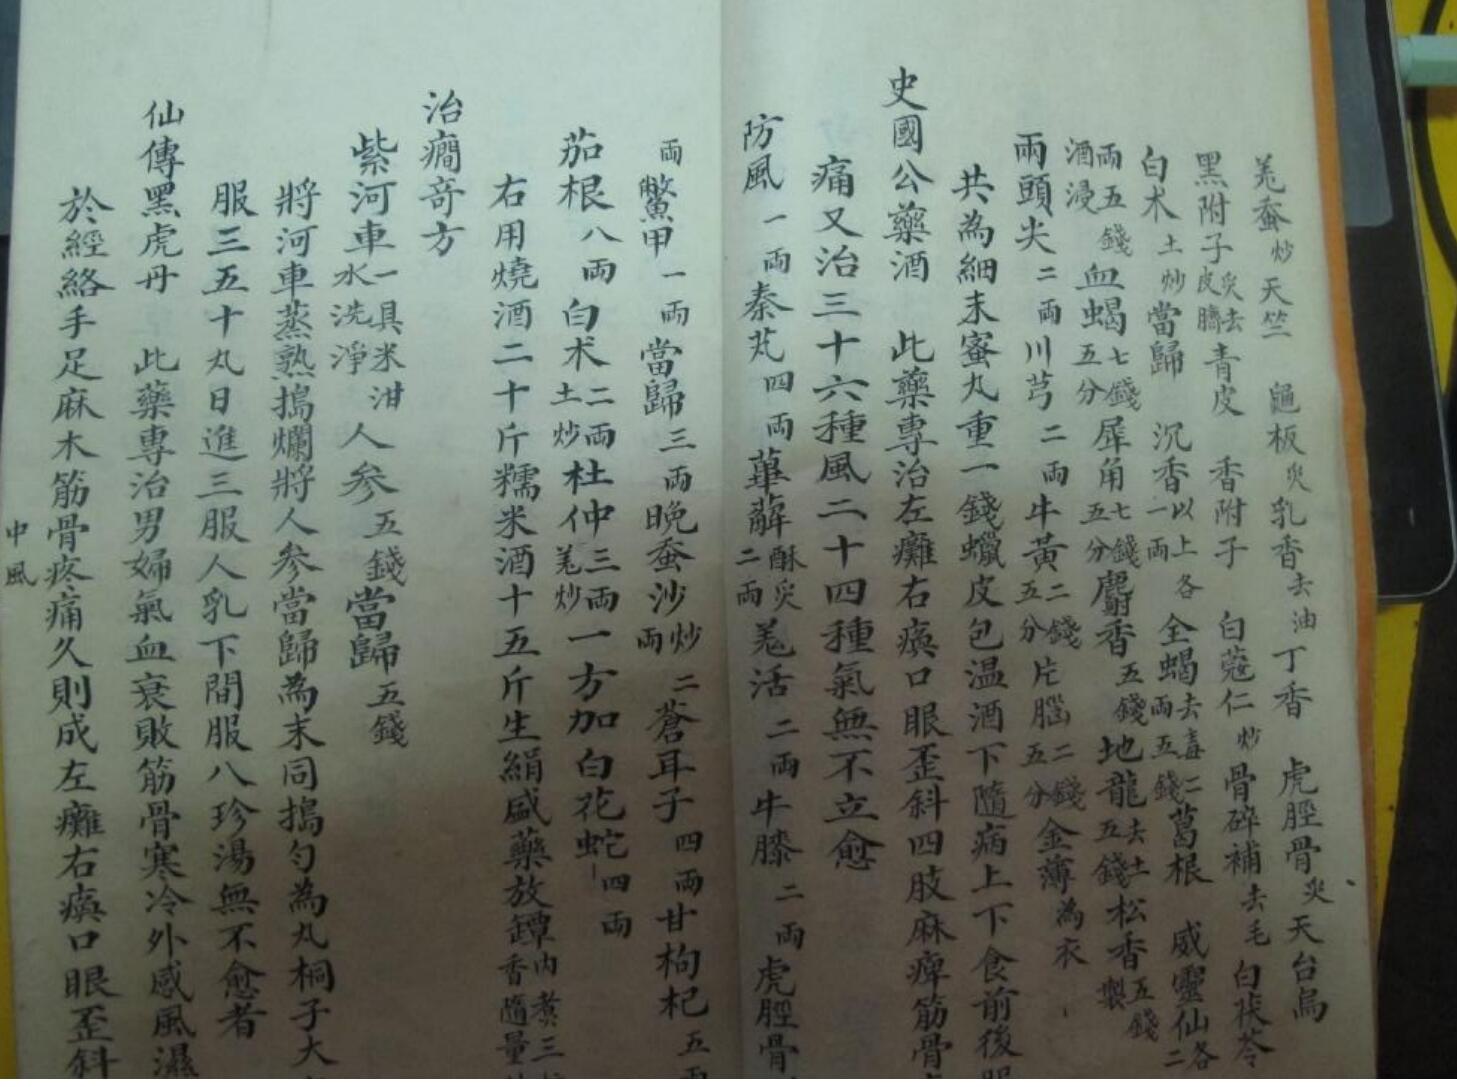 羗蚕炒天竺 龜板炙乳香去油丁香 虎脛骨炙天台烏
黑附子炙去皮臍青皮 香附子 白蔻仁炒骨碎補去毛白茯苓
白术土炒當歸 沉香以上各一兩全蝎去毒二兩五錢葛根 威靈仙各二
兩五錢酒浸血蝎七錢五分犀角七錢五分麝香五錢地龍去土五錢松香五錢製
兩頭尖二兩川芎二兩牛黃二錢五分片腦二錢五分金薄為衣
共為細末蜜丸重一錢蠟皮包温酒下隨病上下食前後服
史國公藥酒 此藥專治左癱右瘓口眼歪斜四肢麻痺筋骨
痛又治三十六種風二十四種氣無不立愈
防風一兩秦艽四兩萆薢酥炙二兩羗活二兩牛膝二兩虎脛骨
兩鱉甲一兩當歸三兩晚蚕沙炒二兩蒼耳子四兩甘枸杞五兩
茄根八兩白术二兩土炒杜仲三兩羗炒一方加白花蛇四兩
右用燒酒二十斤糯米酒十五斤生絹盛藥放罈內煑三香隨量
治癇奇方
紫河車一具米泔水洗淨人參五錢當歸五錢
將河車蒸熟搗爛將人參當歸為末同搗匀為丸桐子大
服三五十丸日進三服人乳下間服八珍湯無不愈者
仙傳黑虎丹 此藥專治男婦氣血衰敗筋骨寒冷外感風濕
於經絡手足麻木筋骨疼痛久則成左癱右瘓口眼歪斜
中風